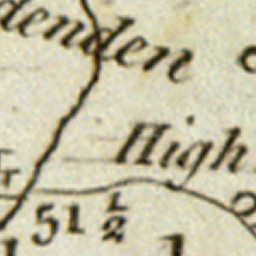 denden
High
51 1/2